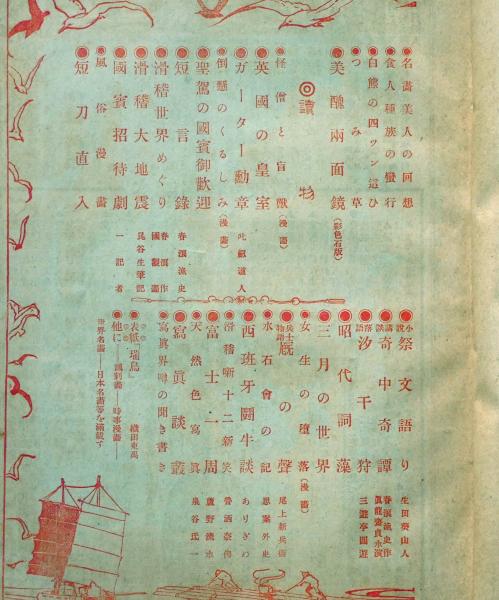 ◉名畫美人の回想
◉食人種族の蠻行
◉白熊の四ツン這ひ
◉つみ草
◉美醜兩面鏡(彩色石版)
◎讀物
◉怪僧と盲獸(漫畫)
◉英國の皇室
◉ガーター勳章
◉倒懸のくるしみ(漫畫)
◉聖駕の國賓御歡迎
◉短言錄 春浪漁史
◉滑稽世界めぐり
◉滑稽大地震
◉國賓招待劇 一記者
◉風俗漫畫
◉短刀直入
◉小說祭文語り 生田葵山人
◉奇中奇譚 春浪漁史作
◉落語汐干狩 三遊亭圓遊
◉昭代詞藻
◉三月の世界
◉女生の墮落(漫畫)
◉兵士物語厩の聲 尾上新兵衞
◉水石會の記 思案外史
◉西班牙鬪牛談 ありぎの
◉滑稽新十二新笑
◉富士一周 蘆野流水
◉天然色寫眞 泉谷氏一
◉寫眞談叢
◉寫眞界噂の聞き書き
◉表紙『瑞鳥』 織田東禹
◉他に 時事漫畫
世界名畫 日本名畫等を滿載す